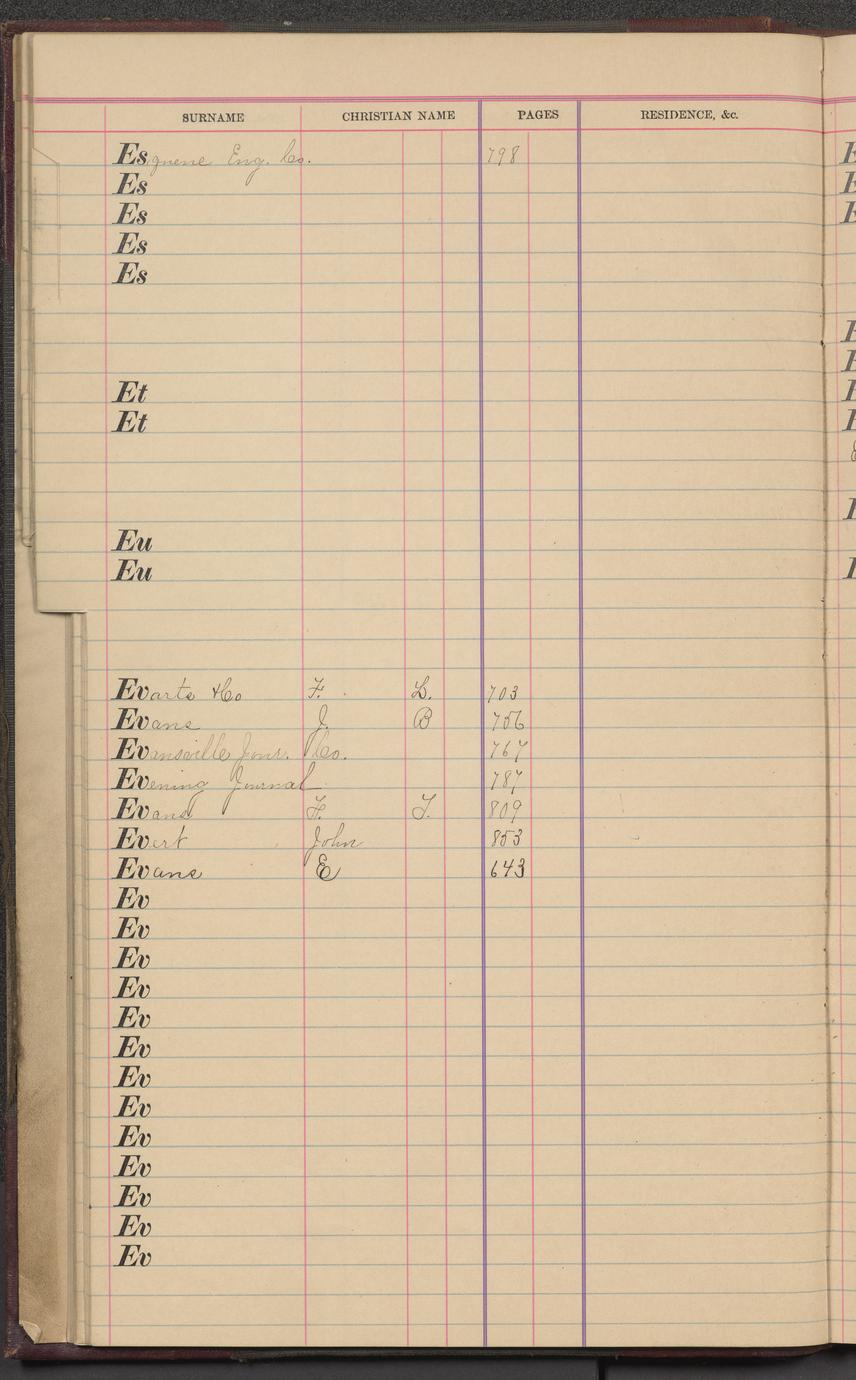 SURNAME CHRISTIAN NAME PAGES RESIDENCE, &c.
Esquene Eng. Co. 798
Es
Es
Es
Es
Et
Et
Eu
Eu
Evarts & Co F. L. 703
Evans J. B 756
Evansville Jour. Co. 767
Evening Journal 787
Evans F. T. 809
Evert John 853
Evans E 643
Ev
Ev
Ev
Ev
Ev
Ev
Ev
Ev
Ev
Ev
Ev
Ev
Ev